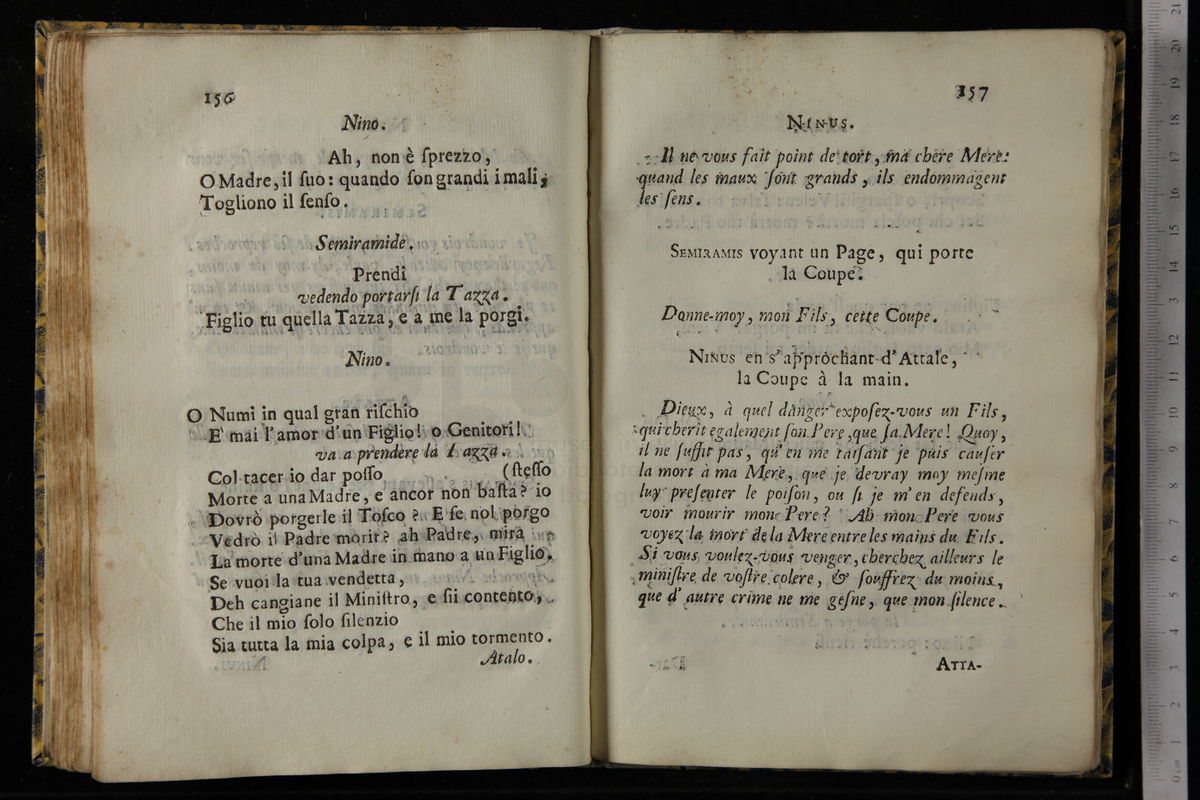 156
Nino.
Ah, non è ſprezzo,
O Madre, il ſuo: quando ſon grandi i mali,
Togliono il ſenſo.
Semiramide.
Prendi
vedendo portarſi la Tazza.
Figlio tu quella Tazza, e a me la porgi.
Nino.
O Numi in qual gran riſchio
E' mai l'amor d'un Figlio! o Genitori!
va a prendere la Tazza.
Col tacer io dar poſſo (ſteſſo
Morte a una Madre, e ancor non baſta? io
Dovrò porgerle il Toſco? E ſe nol porgo
Vedrò il Padre morir? ah Padre, mira
La morte d'una Madre in mano a un Figlio.
Se vuoi la tua vendetta,
Deh cangiane il Miniſtro, e ſii contento,
Che il mio ſolo ſilenzio
Sia tutta la mia colpa, e il mio tormento.
Atalo.
157
NINUS.
Il ne vous fait point de tort, ma chère Mere:
quand les maux ſont grands, ils endommagent
les ſens.
SEMIRAMIS voyant un Page, qui porte
la Coupe.
Donne-moy, mon Fils, cette Coupe.
NINUS en s'approchant d'Attale,
la Coupe à la main.
Dieux, à quel danger expoſez-vous un Fils,
qui cherit egalement ſon Pere, que ſa Mere! Quoy,
il ne ſuffit pas, qu'en me taiſant je puis cauſer
la mort à ma Mere, que je devray moy meſme
luy preſenter le poiſon, ou ſi je m'en defends,
voir mourir mon Pere? Ah mon Pere vous
voyez la mort de la Mere entre les mains du Fils.
Si vous voulez-vous venger, cherchez ailleurs le
miniſtre de voſtre colere, & ſouffrez du moins,
que d'autre crime ne me geſne, que mon ſilence.
ATTA-